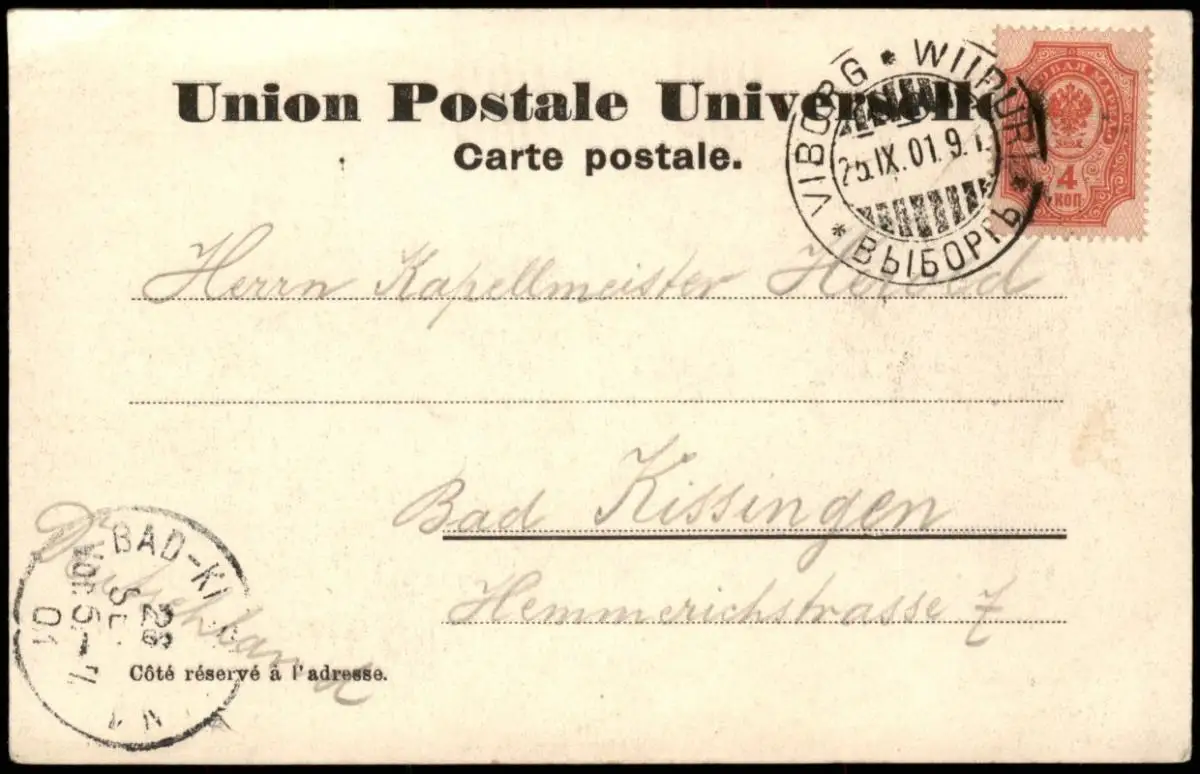 Union Postale Universelle
Carte postale.
VIBORG * WIIPURI * ВЫБОРГЪ *
25.IX.01. 9.
4
КОП
Herrn Kapellmeister
Bad Kissingen
Hemmerichstrasse 7
Deutschland
BAD-KI
28
SE
VOR. 5-
01
Côté réservé à l'adresse.